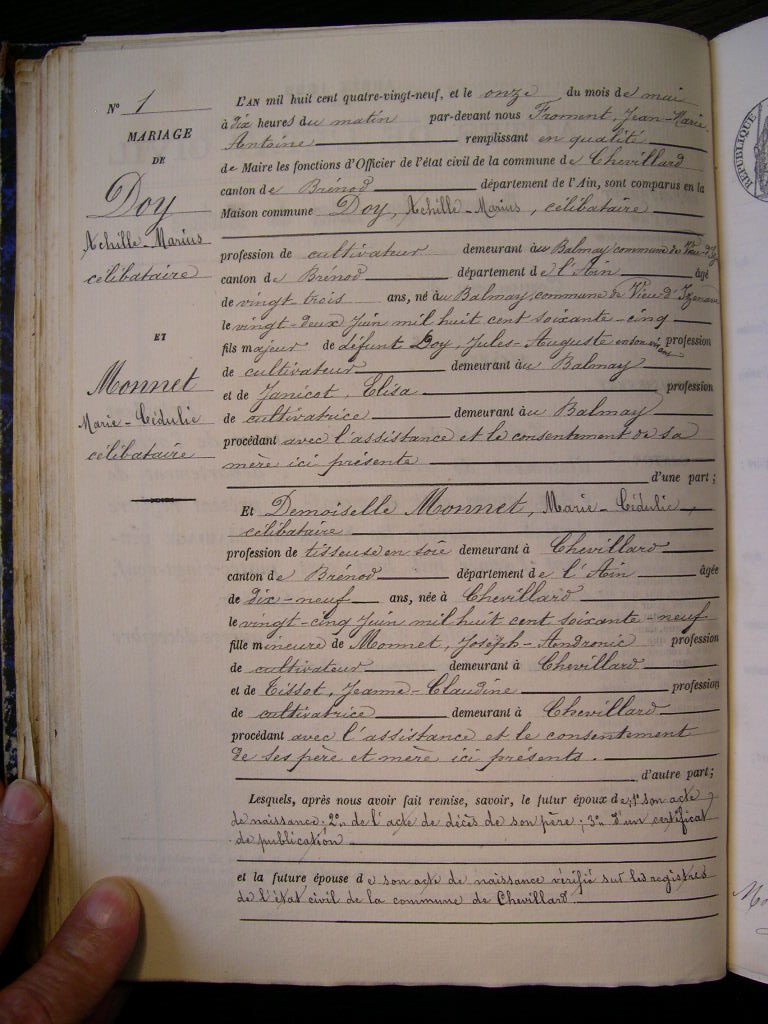 N° 1
MARIAGE
DE
Doy
Achille-Marius
célibataire
ET
Monnet
Marie-Cédulie
célibataire
L'AN mil huit cent quatre-vingt-neuf, et le onze du mois de mai
à dix heures du matin par-devant nous Froment, Jean-Marie,
Antoine remplissant en qualité
de Maire les fonctions d'Officier de l'état civil de la commune de Chevillard
canton de Brénod département de l'Ain, sont comparus en la
Maison commune Doy, Achille-Marius, célibataire
profession de cultivateur demeurant au Balmay commune de Vieu d'Iz
canton de Brénod département de l'Ain âgé
de vingt-trois ans, né au Balmay, commune de Vieu d'Izenave
le vingt-deux Juin mil huit cent soixante-cinq
fils majeur de défunt Doy, Jules-Auguste en son vivant profession
de cultivateur demeurant au Balmay
et de Janicot, Elisa profession
de cultivatrice demeurant au Balmay
procédant avec l'assistance et le consentement de sa
mère ici présente
d'une part;
Et Demoiselle Monnet, Marie-Cédulie,
célibataire
profession de tisseuse en soie demeurant à Chevillard
canton de Brénod département de l'Ain âgée
de dix-neuf ans, née à Chevillard
le vingt-cinq Juin mil huit cent soixante-neuf
fille mineure de Monnet, Joseph-Andronic profession
de cultivateur demeurant à Chevillard
et de Tissot, Jeanne-Claudine profession
de cultivatrice demeurant à Chevillard
procédant avec l'assistance et le consentement
de ses père et mère ici présents.
d'autre part;
Lesquels, après nous avoir fait remise, savoir, le futur époux de: 1° son acte
de naissance; 2° de l'acte de décès de son père; 3° d'un certificat
de publication
et la future épouse de son acte de naissance vérifié sur les registres
de l'état civil de la commune de Chevillard.
RÉPUBLIQUE